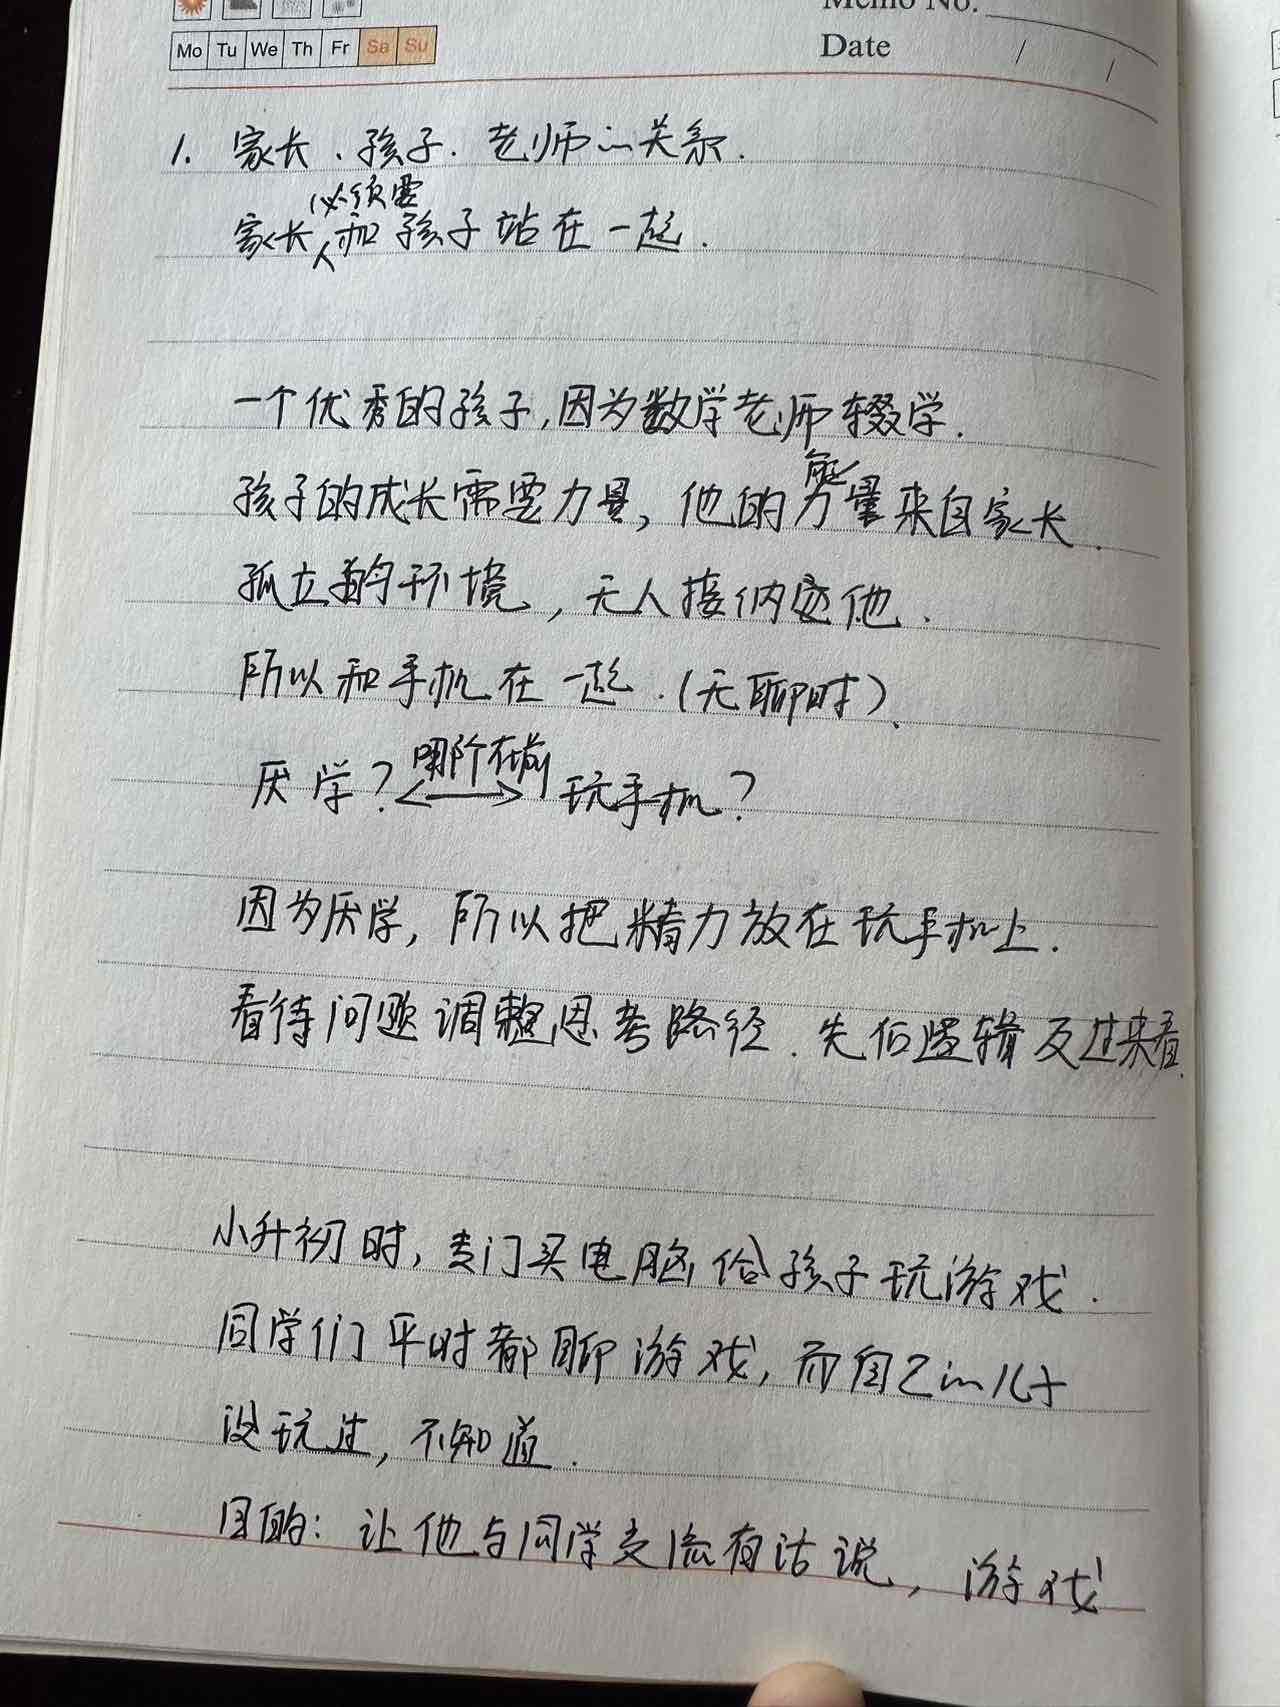 Memo No.
Mo Tu We Th Fr Sa Su
Date / /
1. 家长、孩子、老师的关系.
必须要
家长和孩子站在一起.
一个优秀的孩子,因为数学老师辍学.
孩子的成长需要力量,他的能量来自家长.
孤立的环境,无人接纳他.
所以和手机在一起.(无聊时)、
厌学? 哪个在前 玩手机?
因为厌学,所以把精力放在玩手机上.
看待问题调整思考路径.先后逻辑反过来看.
小升初时,专门买电脑给孩子玩游戏.
同学们平时都聊游戏,而自己的儿子
没玩过,不知道.
目的:让他与同学交流有话说,游戏